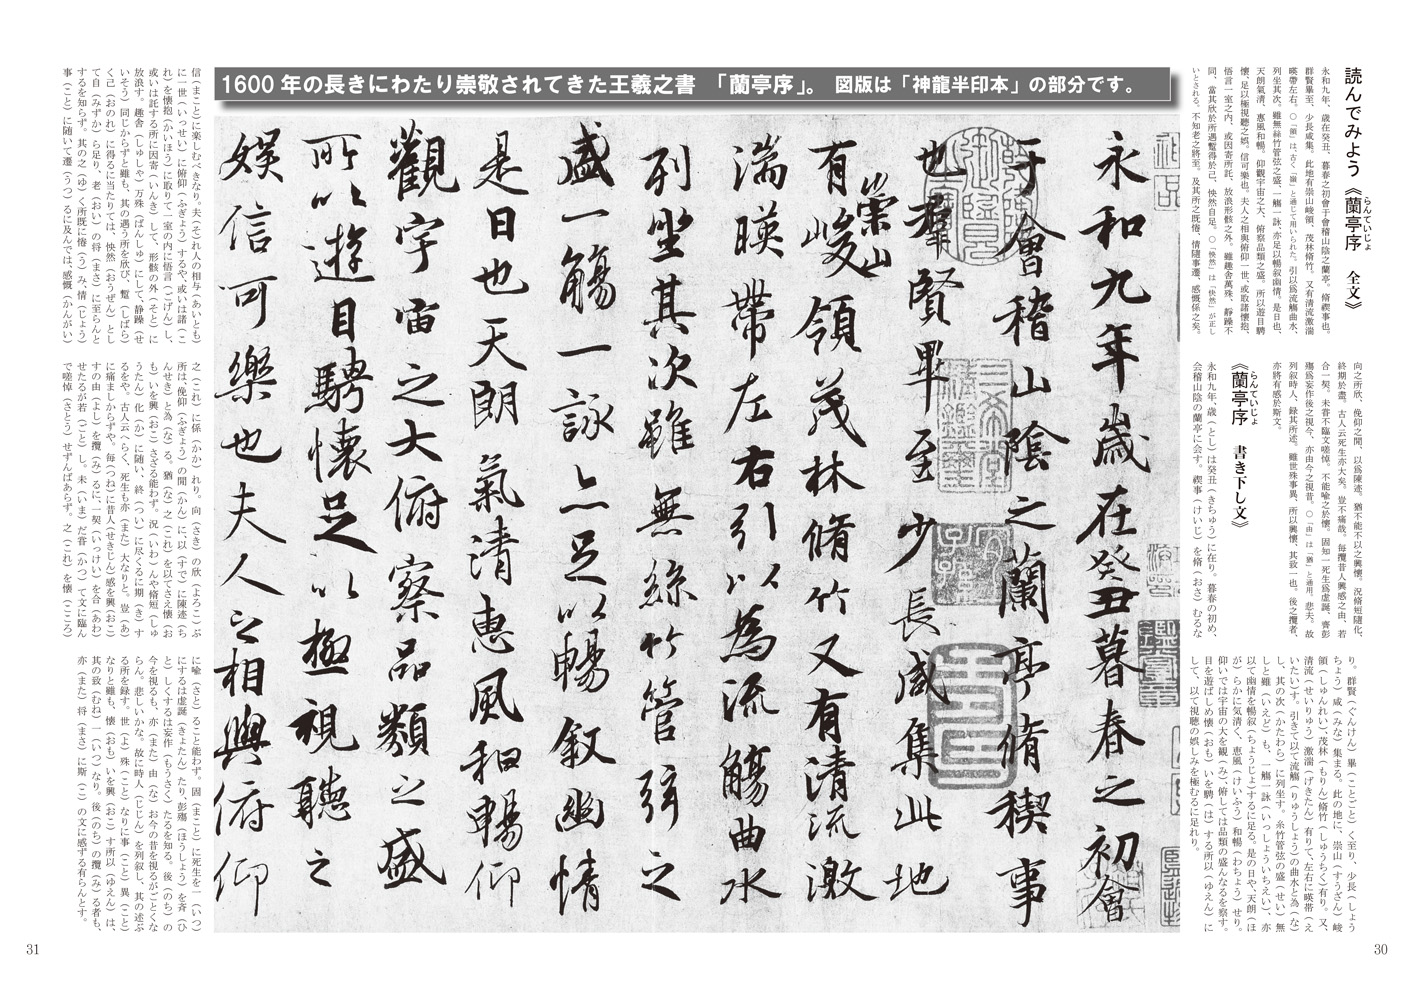 1600年の長きにわたり崇敬されてきた王羲之書 「蘭亭序」。 図版は「神龍半印本」の部分です。
読んでみよう《蘭亭序 全文》
らんていじょ
永和九年、歳在癸丑、暮春之初會于會稽山陰之蘭亭。脩禊事也。
群賢畢至、少長咸集。此地有崇山峻領、茂林脩竹。又有清流激湍
暎帶左右。○「領」は、古く「嶺」と通じて用いられた。引以爲流觴曲水、
列坐其次。雖無絲竹管弦之盛、一觴一詠、亦足以暢叙幽情。是日也、
天朗氣清、惠風和暢。仰觀宇宙之大、俯察品類之盛。所以遊目騁
懷、足以極視聽之娯。信可樂也。夫人之相與俯仰一世、或取諸懷抱、
悟言一室之内、或因寄所託、放浪形骸之外。雖趣舎萬殊、靜躁不
同、當其欣於所遇蹔得於己、怏然自足。○「怏然」は「快然」が正し
いとされる。不知老之將至。及其所之既惓、情隨事遷、感慨係之矣。
向之所欣、俛仰之閒、以爲陳迹。猶不能不以之興懷。況脩短隨化、
終期於盡。古人云死生亦大矣。豈不痛哉。毎攬昔人興感之由、若
合一契、未甞不臨文嗟悼。不能喩之於懷。固知一死生爲虚誕、齊彭
殤爲妄作後之視今、亦由今之視昔。○「由」は「猶」と通用。悲夫。故
列叙時人、録其所述。雖世殊事異、所以興懷、其致一也。後之攬者、
亦將有感於斯文。
《蘭亭序 書き下し文》
らんていじょ
永和九年、歳（とし）は癸丑（きちゅう）に在り。暮春の初め、
会稽山陰の蘭亭に会す。禊事（けいじ）を脩（おさ）むるな
り。群賢（ぐんけん）畢（ことごと）く至り、少長（しょう
ちょう）咸（みな）集まる。此の地に、崇山（すうざん）峻
領（しゅんれい）、茂林（もりん）脩竹（しゅうちく）有り。又、
清流（せいりゅう）激湍（げきたん）有りて、左右に暎帯（え
いたい）す。引きて以て流觴（りゅうしょう）の曲水と為（な）
し、其の次（かたわら）に列坐す。糸竹管弦の盛（せい）無
しと雖（いえど）も、一觴一詠（いっしょういちえい）、亦
以て幽情を暢叙（ちょうじょ）するに足る。是の日や、天朗（ほ
が）らかに気清く、恵風（けいふう）和暢（わちょう）せり。
仰いでは宇宙の大を観（み）、俯しては品類の盛んなるを察す。
目を遊ばしめ懐（おも）いを騁（は）する所以（ゆえん）に
して、以て視聴の娯しみを極むるに足れり。
永和九年歳在癸丑暮春之初會
于會稽山陰之蘭亭脩禊事
也羣賢畢至少長咸集此地
有崇山峻領茂林脩竹又有清流激
湍暎帶左右引以為流觴曲水
列坐其次雖無絲竹管弦之
盛一觴一詠亦足以暢叙幽情
是日也天朗氣清惠風和暢仰
觀宇宙之大俯察品類之盛
所以遊目騁懷足以極視聽之
娯信可樂也夫人之相與俯仰
信（まこと）に楽しむべきなり。夫（そ）れ人の相与（あいとも）
に一世（いっせい）に俯仰（ふぎょう）するや、或いは諸（こ
れ）を懐抱（かいほう）に取りて一室の内に悟言（ごげん）し、
或いは託する所に因寄（いんき）して、形骸の外（そと）に
放浪す。趣舎（しゅしゃ）万殊（ばんしゅ）にして、静躁（せ
いそう）同じからずと雖も、其の遇う所を欣び、蹔（しばら）
く己（おのれ）に得るに当たりては、怏然（おうぜん）とし
て自（みずか）ら足り、老（おい）の将（まさ）に至らんと
するを知らず。其の之（ゆ）く所既に惓（う）み、情（じょう）
事（こと）に随いて遷（うつ）るに及んでは、感慨（かんがい）
之（これ）に係（かか）れり。向（さき）の欣（よろこ）ぶ
所は、俛仰（ふぎょう）の閒（かん）に、以（すで）に陳迹（ち
んせき）と為（な）る。猶（な）之（これ）を以てさえ懐（お
も）いを興（おこ）さざる能わず。況（いわ）んや脩短（しゅ
うたん）化（か）に随い、終（つい）に尽くるに期（き）す
るをや。古人云へらく、死生も亦（また）大なりと。豈（あ）
に痛ましからずや。毎（つね）に昔人（せきじん）感を興（おこ）
すの由（よし）を攬（み）るに、一契（いっけい）を合（あわ）
せたるが若（ごと）し。未（いま）だ甞（かつ）て文に臨ん
で嗟悼（さとう）せずんばあらず。之（これ）を懐（こころ）
に喩（さと）ること能わず。固（まこと）に死生を一（いつ）
にするは虚誕（きょたん）たり、彭殤（ほうしょう）を斉（ひ
と）しくするは妄作（もうさく）たるを知る。後（のち）の
今を視るも、亦（また）由（な）お今の昔を視るがごとくな
らん。悲しいかな。故に時人（じじん）を列叙し、其の述ぶ
る所を録す。世（よ）殊（こと）なりに事（こと）異（こと）
なりと雖も、懐（おも）いを興（おこ）す所以（ゆえん）は、
其の致（むね）一（いつ）なり。後（のち）の攬（み）る者も、
亦（また）将（まさ）に斯（こ）の文に感ずる有らんとす。
31
30